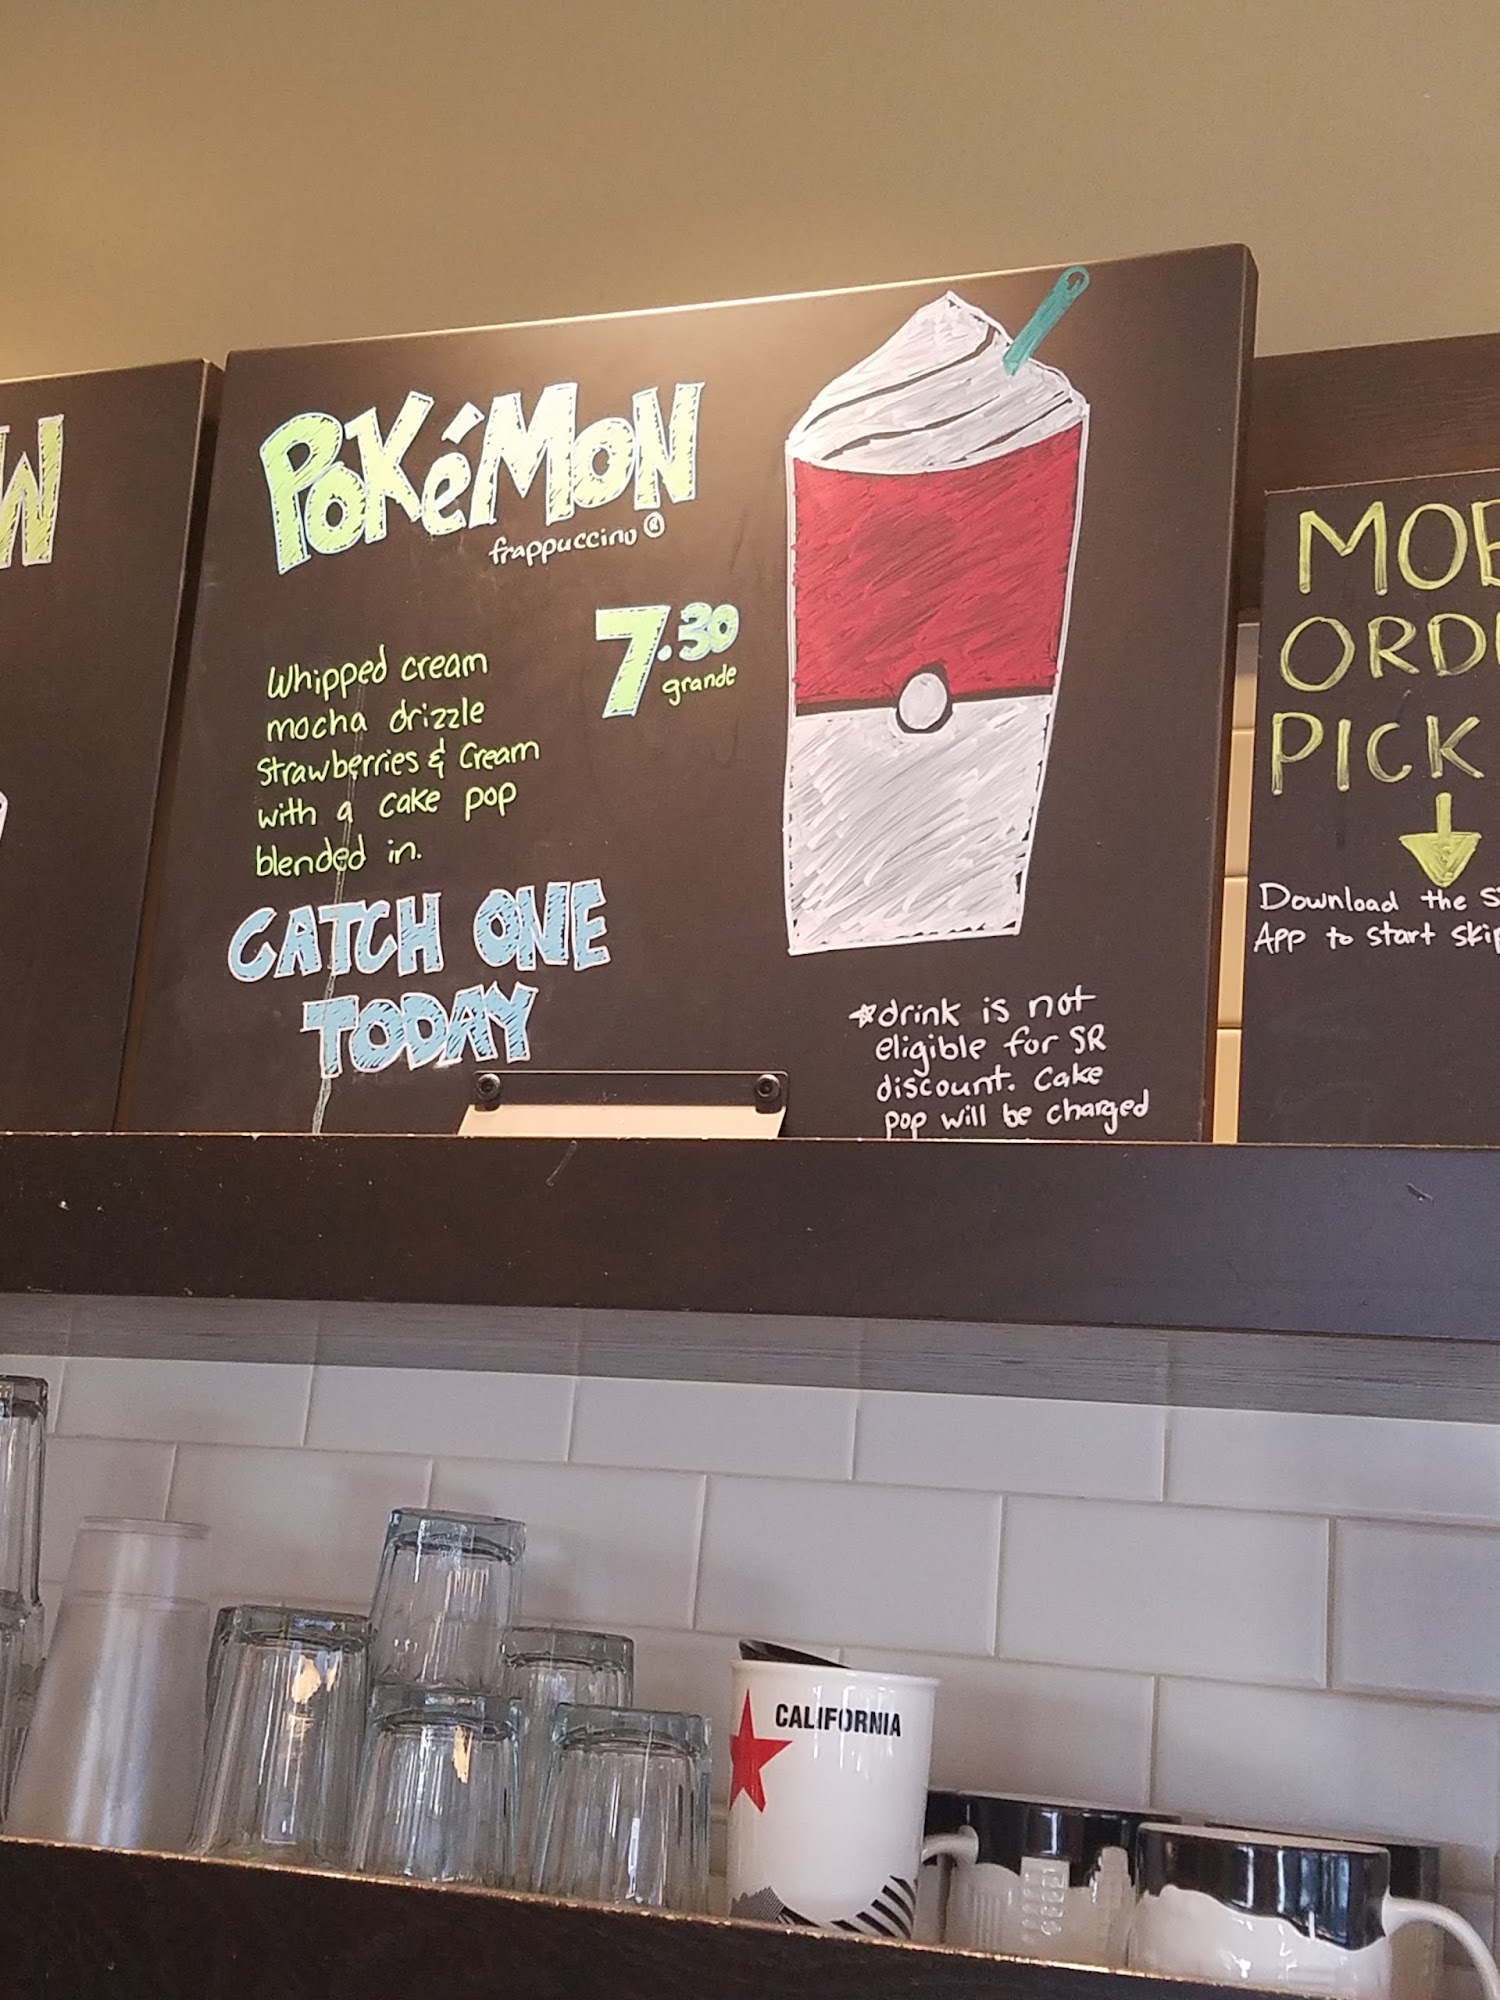 W
POKéMON
frappuccino ®
7.30
grande
Whipped cream
mocha drizzle
Strawberries & Cream
with a cake pop
blended in.
CATCH ONE
TODAY
*drink is not
eligible for SR
discount. Cake
pop will be charged
PICK
Download the
App to start
CALIFORNIA